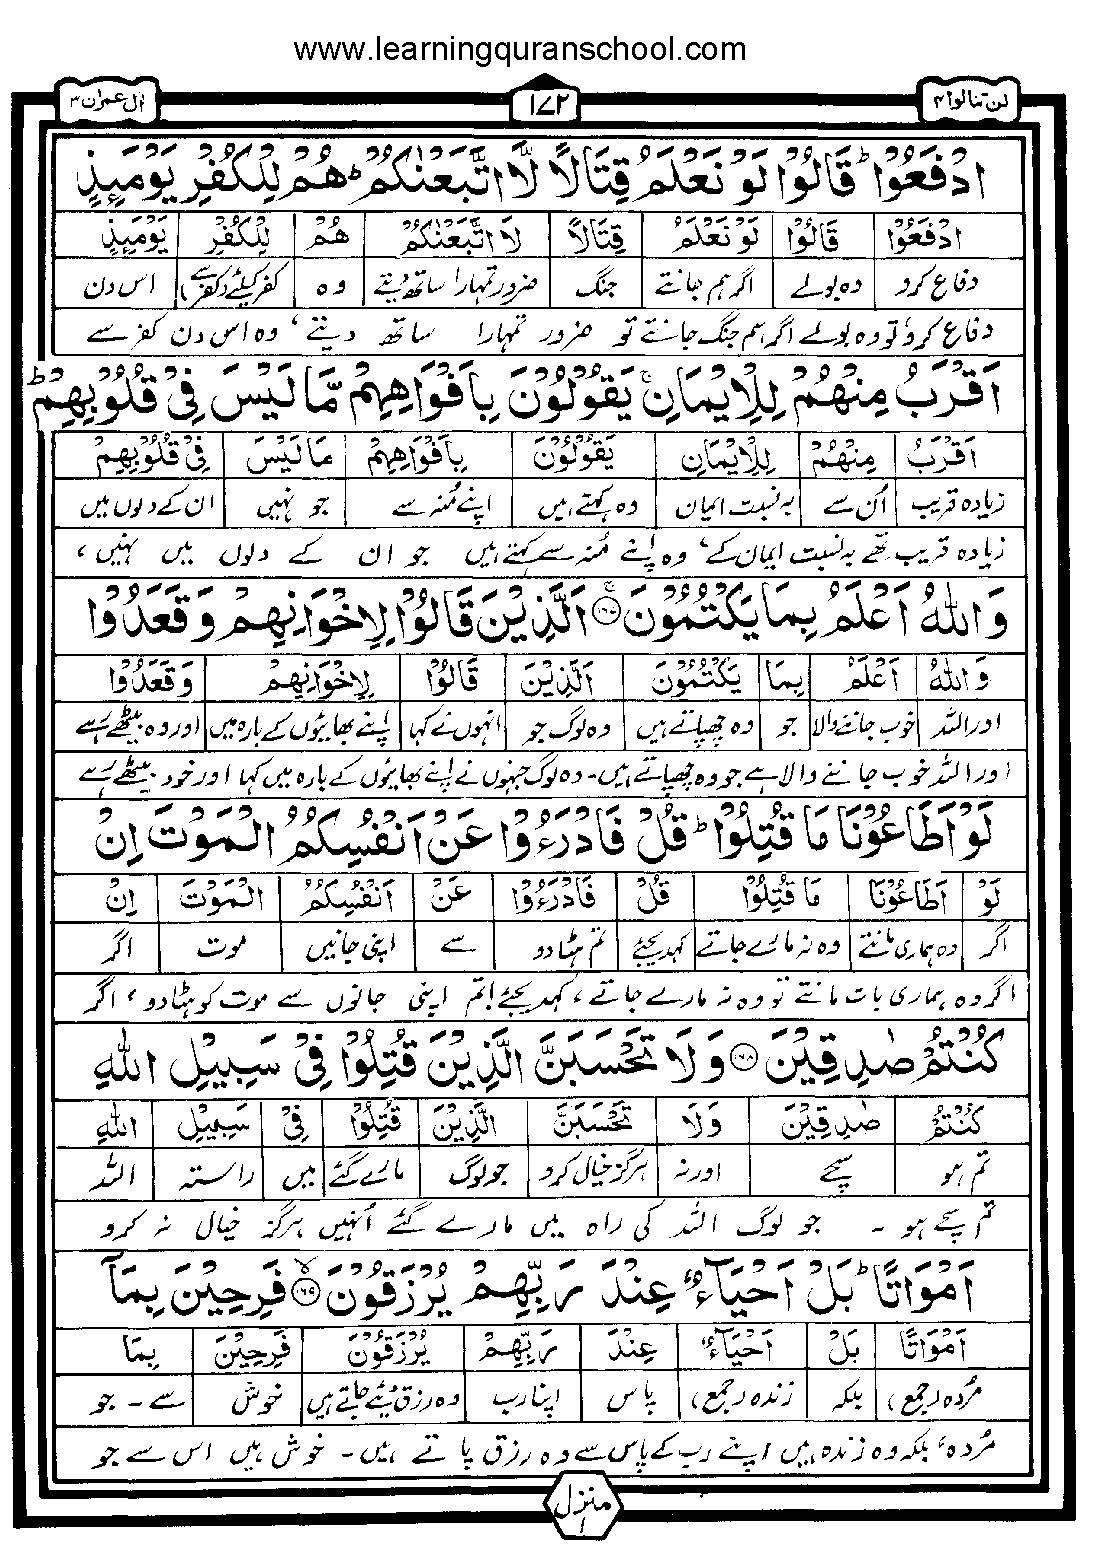 www.learningquranschool.com
لن تنالوا ۴
۱۷۲
اٰل عمران ۳
ادْفَعُوْا ؕ قَالُوْا لَوْ نَعْلَمُ قِتَالًا لَّا اتَّبَعْنٰكُمْ ؕ هُمْ لِلْكُفْرِ يَوْمَىِٕذٍ
ادْفَعُوْا قَالُوْا لَوْ نَعْلَمُ قِتَالًا لَا اتَّبَعْنٰكُمْ هُمْ لِلْكُفْرِ يَوْمَىِٕذٍ
دفاع کرو وہ بولے اگر ہم جانتے جنگ ضرور تمہارا ساتھ دیتے وہ کفر کیلئے (کفر سے) اس دن
دفاع کرو تو وہ بولے اگر ہم جنگ جانتے تو ضرور تمہارا ساتھ دیتے، وہ اس دن کفر سے
اَقْرَبُ مِنْهُمْ لِلْاِيْمَانِ ۚ يَقُوْلُوْنَ بِاَفْوَاهِهِمْ مَّا لَيْسَ فِيْ قُلُوْبِهِمْ ؕ
اَقْرَبُ مِنْهُمْ لِلْاِيْمَانِ يَقُوْلُوْنَ بِاَفْوَاهِهِمْ مَا لَيْسَ فِيْ قُلُوْبِهِمْ
زیادہ قریب اُن سے بہ نسبت ایمان وہ کہتے ہیں اپنے مُنہ سے جو نہیں ان کے دلوں میں
زیادہ قریب تھے بہ نسبت ایمان کے، وہ اپنے مُنہ سے کہتے ہیں جو ان کے دلوں میں نہیں،
وَاللّٰهُ اَعْلَمُ بِمَا يَكْتُمُوْنَ ۚ ﴿۱۶۷﴾ اَلَّذِيْنَ قَالُوْا لِاِخْوَانِهِمْ وَقَعَدُوْا
وَاللّٰهُ اَعْلَمُ بِمَا يَكْتُمُوْنَ اَلَّذِيْنَ قَالُوْا لِاِخْوَانِهِمْ وَقَعَدُوْا
اور اللہ خوب جاننے والا جو وہ چھپاتے ہیں وہ لوگ جو انہوں نے کہا اپنے بھائیوں کے بارہ میں اور وہ بیٹھے رہے
اور اللہ خوب جاننے والا ہے جو وہ چھپاتے ہیں۔ وہ لوگ جنہوں نے اپنے بھائیوں کے بارہ میں کہا اور خود بیٹھے رہے
لَوْ اَطَاعُوْنَا مَا قُتِلُوْا ؕ قُلْ فَادْرَءُوْا عَنْ اَنْفُسِكُمُ الْمَوْتَ اِنْ
لَوْ اَطَاعُوْنَا مَا قُتِلُوْا قُلْ فَادْرَءُوْا عَنْ اَنْفُسِكُمُ الْمَوْتَ اِنْ
اگر وہ ہماری مانتے وہ نہ مارے جاتے کہدیجئے تم ہٹا دو سے اپنی جانیں موت اگر
اگر وہ ہماری بات مانتے تو وہ نہ مارے جاتے، کہدیجئے! تم اپنی جانوں سے موت کو ہٹا دو، اگر
كُنْتُمْ صٰدِقِيْنَ ﴿۱۶۸﴾ وَلَا تَحْسَبَنَّ الَّذِيْنَ قُتِلُوْا فِيْ سَبِيْلِ اللّٰهِ
كُنْتُمْ صٰدِقِيْنَ وَلَا تَحْسَبَنَّ الَّذِيْنَ قُتِلُوْا فِيْ سَبِيْلِ اللّٰهِ
تم ہو سچے اور نہ ہرگز خیال کرو جو لوگ مارے گئے میں راستہ اللہ
تم سچے ہو ۔ جو لوگ اللہ کی راہ میں مارے گئے اُنہیں ہرگز خیال نہ کرو
اَمْوَاتًا ؕ بَلْ اَحْيَآءٌ عِنْدَ رَبِّهِمْ يُرْزَقُوْنَ ۙ ﴿۱۶۹﴾ فَرِحِيْنَ بِمَآ
اَمْوَاتًا بَلْ اَحْيَآءٌ عِنْدَ رَبِّهِمْ يُرْزَقُوْنَ فَرِحِيْنَ بِمَا
مُردہ (جمع) بلکہ زندہ (جمع) پاس اپنا رب وہ رزق دیئے جاتے ہیں خوش سے ۔ جو
مُردہ، بلکہ وہ زندہ ہیں اپنے رب کے پاس سے وہ رزق پاتے ہیں۔ خوش ہیں اس سے جو
منزل ۱